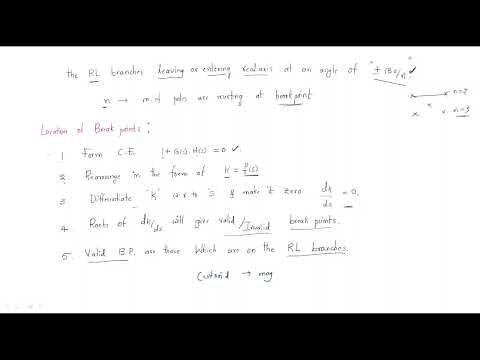 the RL branches leaving or entering real axis at an angle of "± 180/n"
n → no. of poles are meeting at breakpoint
n=2
n=3
Location of Break points :
1 Form C.E 1+G(s).H(s) = 0
2. Rearrange in the form of K = f(s)
3 Differentiate 'K' w.r.to 's' & make it zero dk/ds = 0.
4. Roots of dk/ds will give valid/Invalid break points.
5. Valid B.P. are those which are on the RL branches.
Centroid → mag